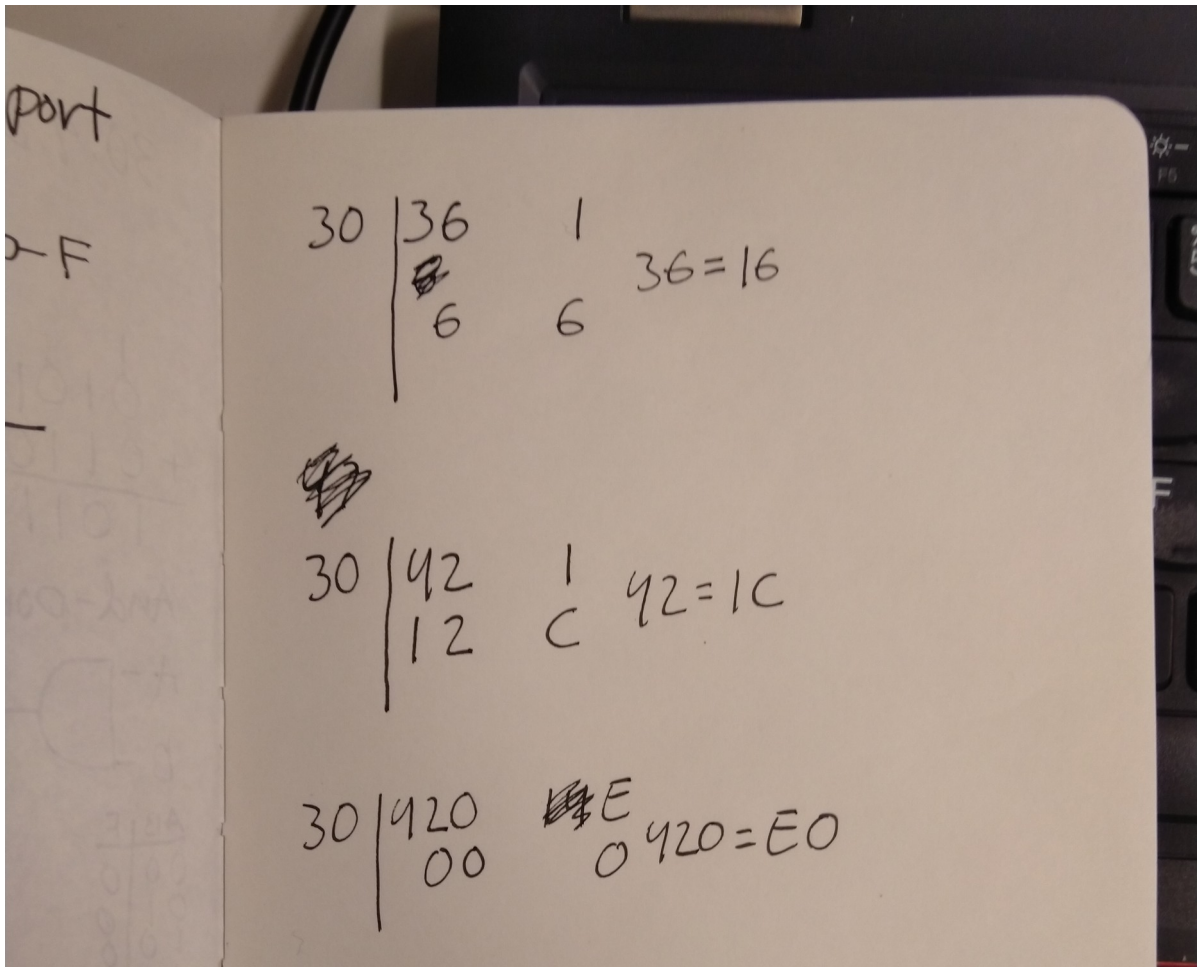 port
-F
30 36 1
36=16
6 6
30 42 1
42=1C
12 C
30 420 E
00 0 420=E0
F5
F